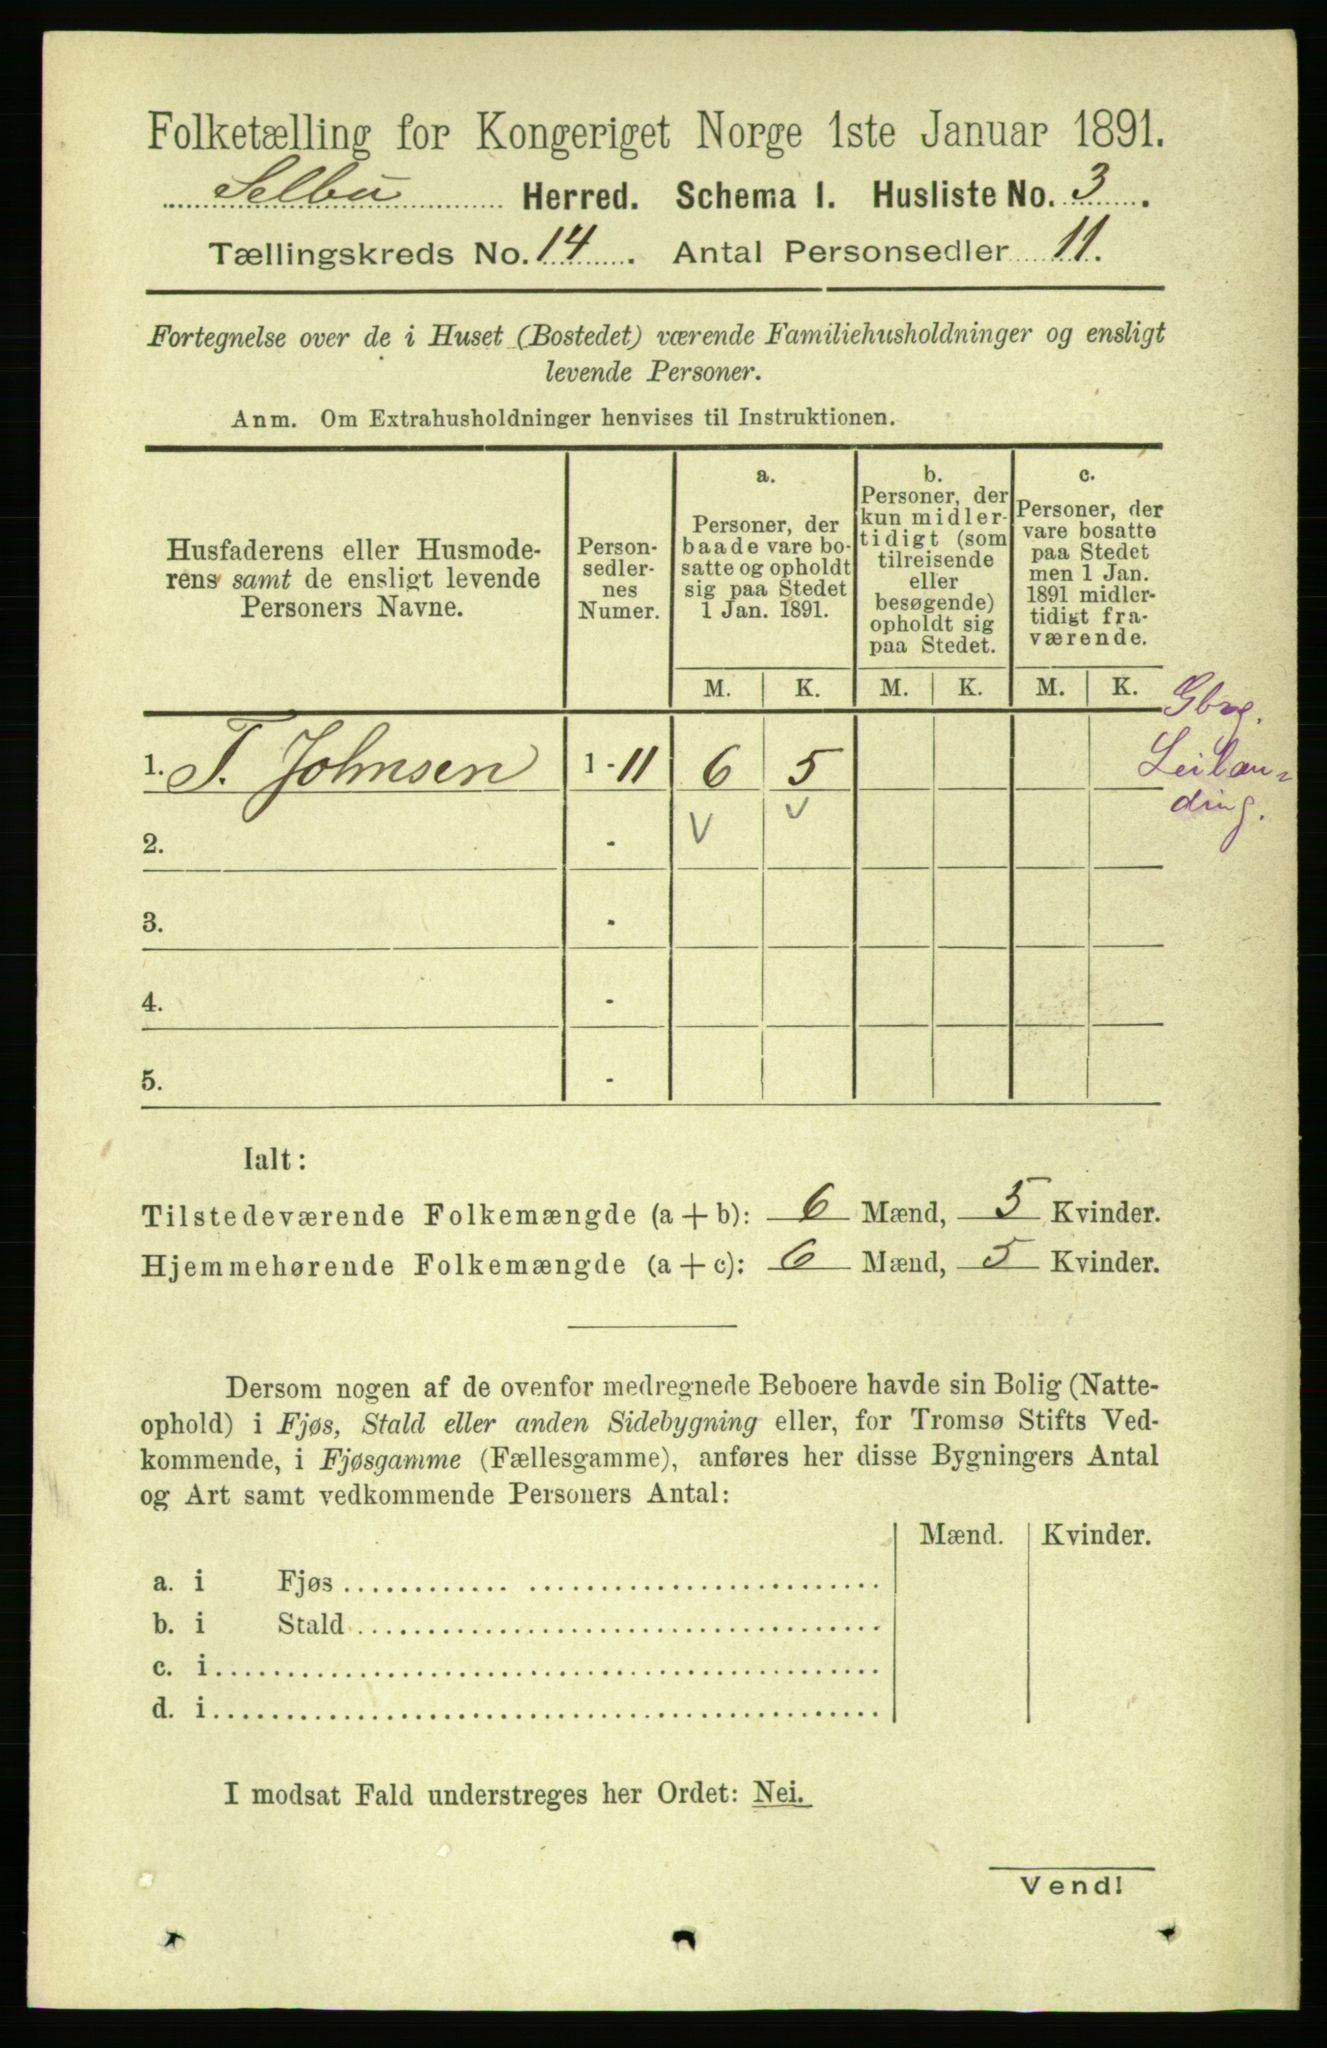 Folketælling for Kongeriget Norge 1ste Januar 1891.
Selbu Herred. Schema 1. Husliste No. 3.
Tællingskreds No. 14. Antal Personsedler 11.
Fortegnelse over de i Huset (Bostedet) værende Familiehusholdninger og ensligt
levende Personer.
Anm. Om Extrahusholdninger henvises til Instruktionen.
Husfaderens eller Husmode-
rens samt de ensligt levende
Personers Navne.
Person-
sedler-
nes
Numer.
a.
Personer, der
baade vare bo-
satte og opholdt
sig paa Stedet
1 Jan. 1891.
b.
Personer, der
kun midler-
tidigt (som
tilreisende
eller
besøgende)
opholdt sig
paa Stedet.
c.
Personer, der
vare bosatte
paa Stedet
men 1 Jan.
1891 midler-
tidigt fra-
værende.
M. K. M. K. M. K.
1. T. Johnsen 1 - 11 6 5
Gbrg.
Leilæn=
ding.
V V
2. -
3. -
4. -
5. -
Ialt:
Tilstedeværende Folkemængde (a + b): 6 Mænd, 5 Kvinder.
Hjemmehørende Folkemængde (a + c): 6 Mænd, 5 Kvinder.
Dersom nogen af de ovenfor medregnede Beboere havde sin Bolig (Natte-
ophold) i Fjøs, Stald eller anden Sidebygning eller, for Tromsø Stifts Ved-
kommende, i Fjøsgamme (Fællesgamme), anføres her disse Bygningers Antal
og Art samt vedkommende Personers Antal:
Mænd. Kvinder.
a. i Fjøs
b. i Stald
c. i
d. i
I modsat Fald understreges her Ordet: Nei.
Vend!